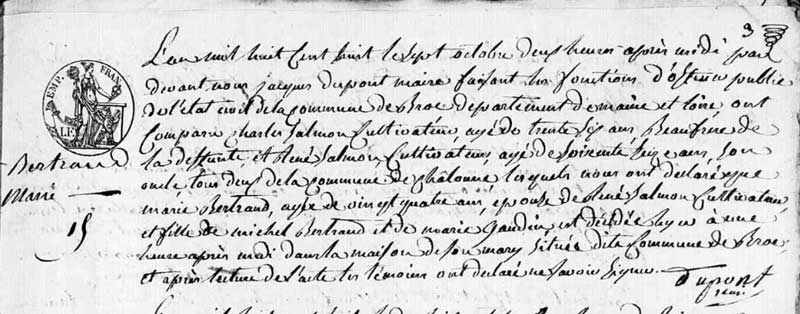 3
L'an mil huit Cent huit le sept octobre deux heures après midi par
devant nous jacques dupont maire faisant les fonctions D'officier public
de l'état civil de la commune de Broc departement de maine et loire ont
Comparu charles Salmon Cultivateur, agé de trente six ans, Beaufrere de
la deffunte, et René Salmon Cultivateur, agé de soixante ans, son
oncle, tous deux de la commune de lesquels nous ont declaré que
marie Bertrand, agée de vingt quatre ans, epouse de René Salmon Cultivateur,
et fille de michel Bertrand et de marie Gaudin, est décédée a une
heure après midi dans la maison de son mary située dite Commune de Broc
et après lecture de l'acte les témoins ont declaré ne savoir signer.
Dupont
maire
EMP. FRAN.
LE
Bertrand
Marie
15